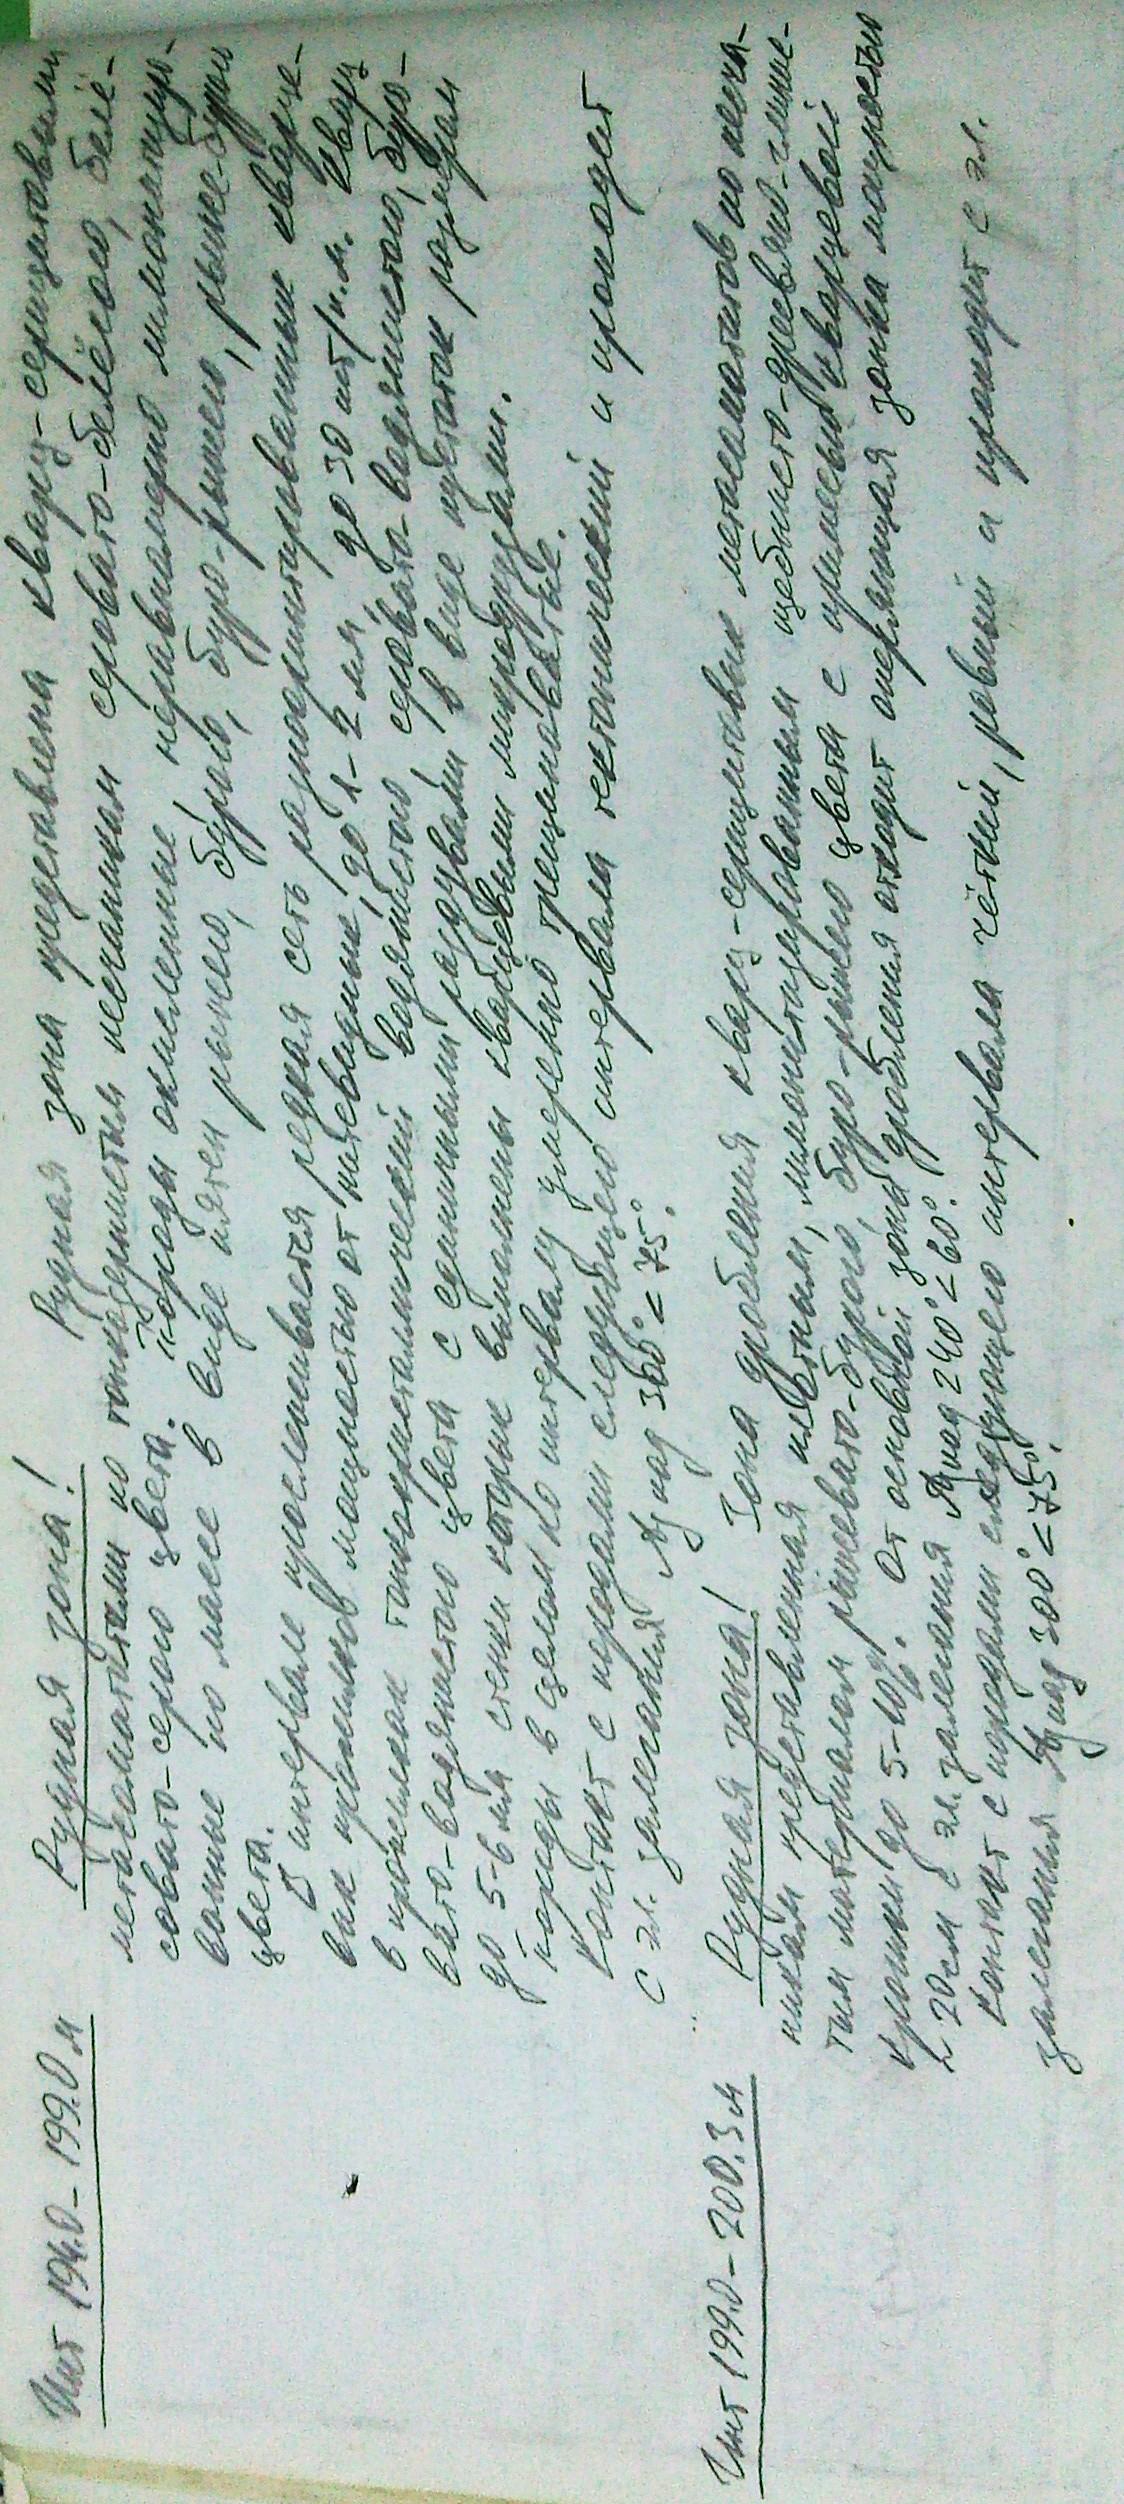 Инт 194.0-199.0 м Рудная зона! Рудная зона представлена кварц-серицитовыми
метасоматитами по тонкозернистым песчаникам серовато-белёсого, белё-
совато-серого цвета. Породы окисленные, неравномерно лимонитизиро-
ванные по массе в виде пятен рыжего, бурого, буро-рыжего, рыже-бурого
цвета.
В интервале прослеживается редкая сеть разноориентированных кварце-
вых прожилков мощностью от нитевидных, до 1-2 мм, до 30 шт/п.м. Кварц
в прожилках тонкокристаллический водянистого, серовато-водянистого, буро-
вато-водянистого цвета с единичными раздувами в виде щёток размером
до 5-6 мм стенки которых выполнены кварцевыми микродрузами.
Породы в целом по интервалу умеренно трещиноватые.
Контакт с породами следующего интервала тектонический и проходит
с эл. залегания Аз пад 300° ∠ 75°.
Инт 199.0-200.3 м Рудная зона! Зона дробления кварц-серицитовых метасоматитов по песча-
никам представленная плотным, лимонитизированным щебнисто-дресвяно-глинис-
тым материалом рыжевато-бурого, буро-рыжего цвета с примесью кварцевой
крошки до 5-10%. От основной зоны дробления отходит оперяющая зонка мощностью
20см с эл. залегания Аз пад 240° ∠ 60°.
Контакт с породами следующего интервала чёткий, ровный и проходит с эл.
залегания Аз пад 300° ∠ 75°.